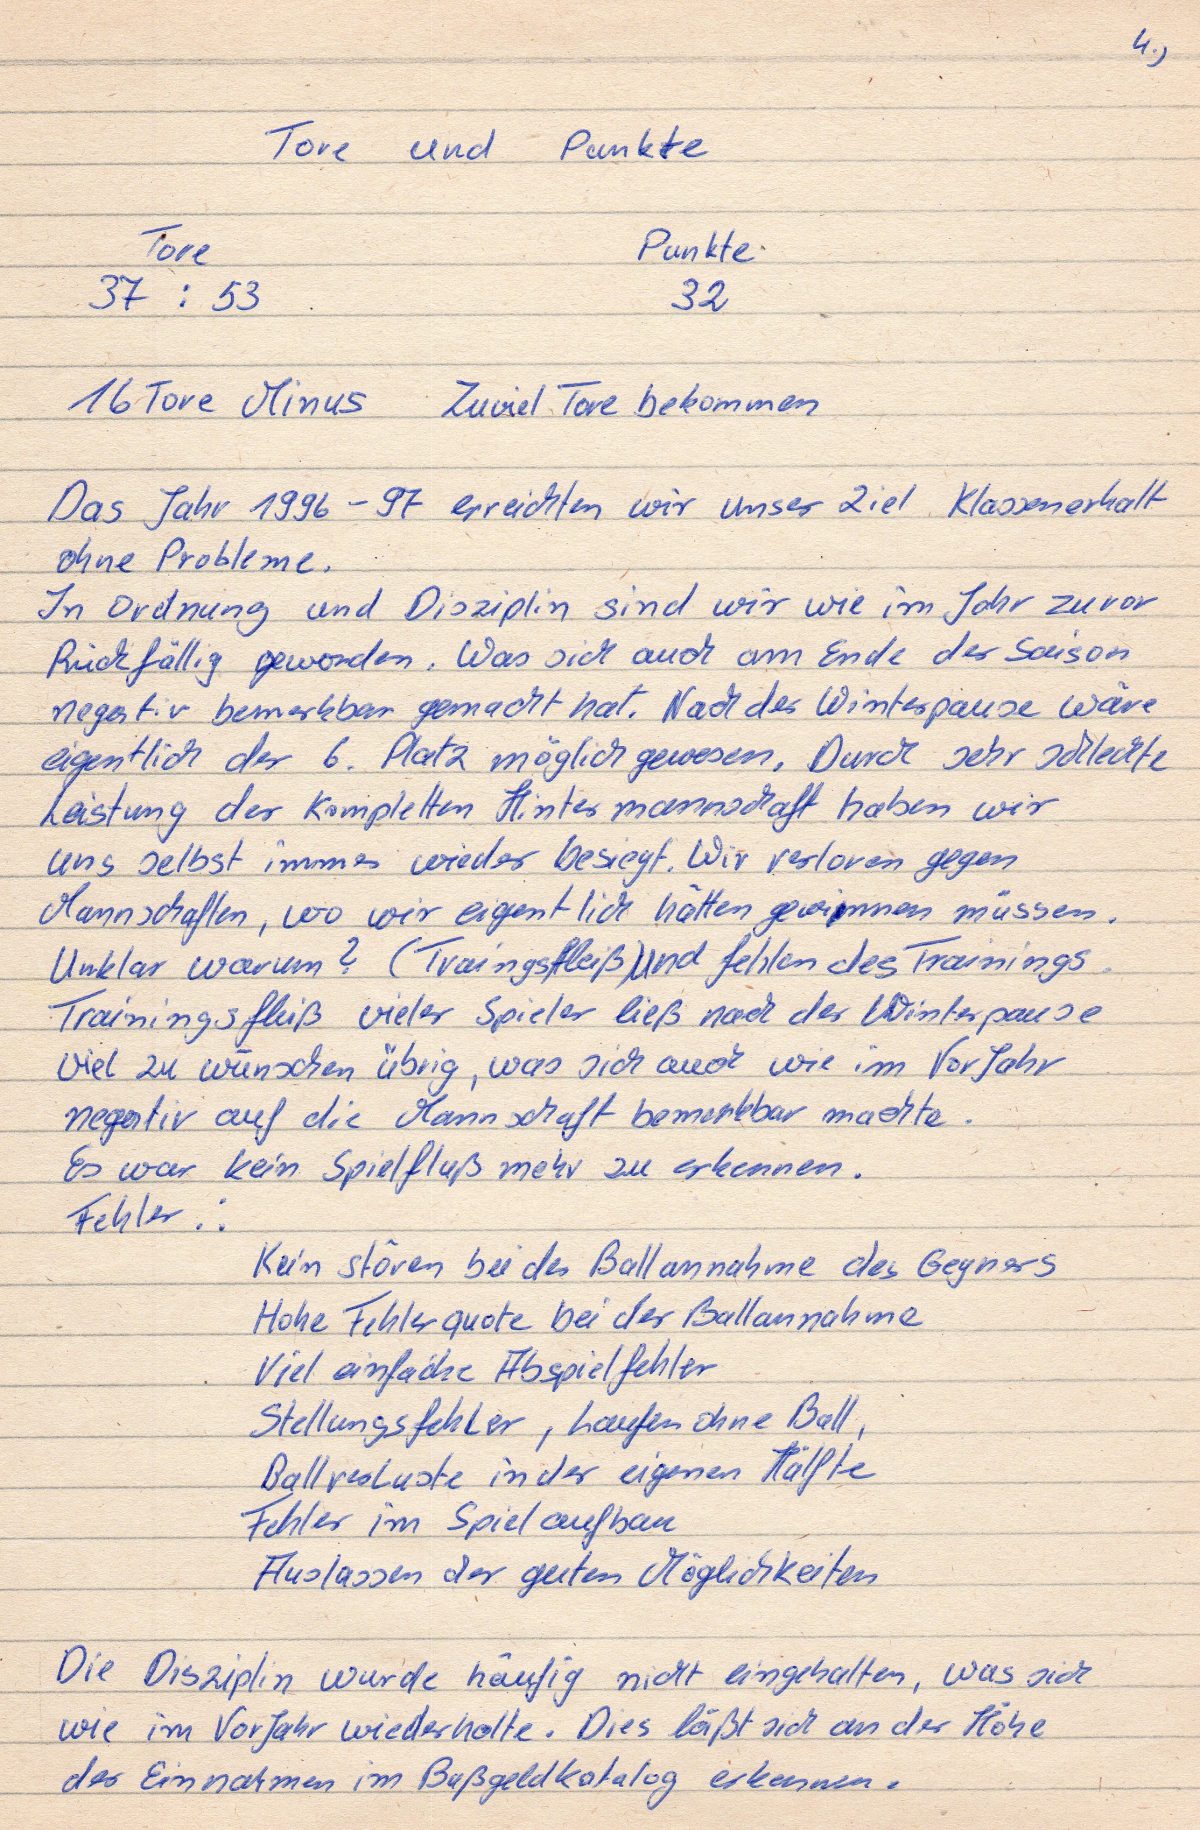 4.)
Tore und Punkte
Tore Punkte
37 : 53 32
16 Tore Minus Zuviel Tore bekommen
Das Jahr 1996 - 97 erreichten wir unser Ziel Klassenerhalt
ohne Probleme.
In Ordnung und Disziplin sind wir wie im Jahr zuvor
Rückfällig geworden. Was sich auch am Ende der Saison
negativ bemerkbar gemacht hat. Nach der Winterpause wäre
eigentlich der 6. Platz möglich gewesen. Durch sehr schlechte
Leistung der Kompletten Hintermannschaft haben wir
uns selbst immer wieder besiegt. Wir verloren gegen
Mannschaften, wo wir eigentlich hätten gewinnen müssen.
Unklar warum? (Traingsfleiß) Und fehlen des Trainings.
Trainingsfleiß vieler Spieler ließ nach der Winterpause
viel zu wünschen übrig, was sich auch wie im VorJahr
negativ auf die Mannschaft bemerkbar machte.
Es war kein Spielfluß mehr zu erkennen.
Fehler.:
Kein stören bei der Ballannahme des Gegners
Hohe Fehlerquote bei der Ballannahme
Viel einfache Abspielfehler
Stellungsfehler, Laufen ohne Ball,
Ballverluste in der eigenen Hälfte
Fehler im Spielaufbau
Auslassen der guten Möglichkeiten
Die Disziplin wurde häufig nicht eingehalten, was sich
wie im VorJahr wiederholte. Dies läßt sich an der Höhe
der Einnahmen im Bußgeldkatalog erkennen.